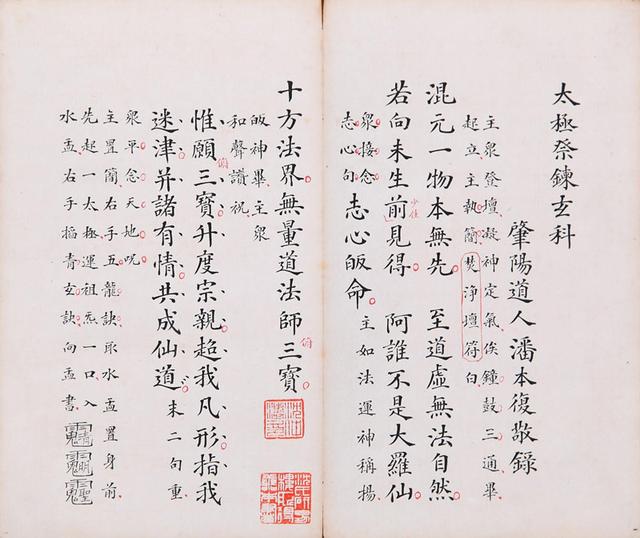 太極祭鍊玄科
肇陽道人潘本復敬錄
主衆登壇凝神定氣俟鐘鼓三通畢
起立主執簡焚淨壇符白
混元一物本無先 至道虛無法自然
若向未生前見得 阿誰不是大羅仙
少住
衆接念
志心句
志心皈命 主如法運神稱揚
十方法界無量道法師三寶
俯
皈神畢主衆
和聲讚祝
惟願三寶升度宗親超我凡形指我
俯
迷津并諸有情共成仙道 末二句重
衆平念天地咒
主置簡右手五龍訣取水盂置身前
先起一太極運祖炁一口入
水盂右手掐青玄訣向盂書